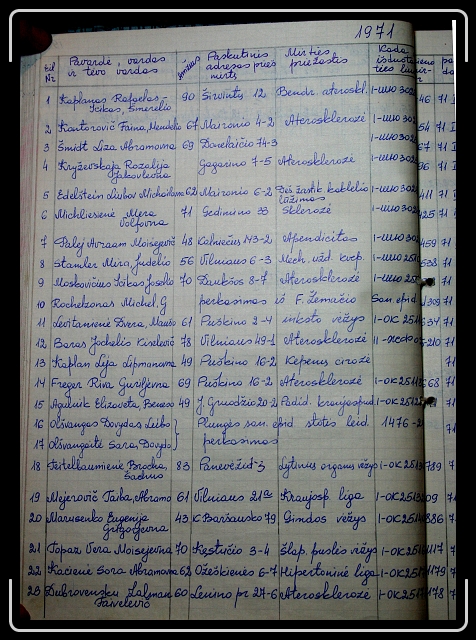 1971
Eil Nr. Pavardė, vardas ir tėvo vardas Amžius Paskutinis adresas prieš mirtį Mirties priežastis Kada išduotas
1 Kaplanas Rafaelas-Icikas, Šmerelio 90 Širvintų 12 Bendr. ateroskl. I-ШЮ 302 46 71
2 Kantorovič Faina, Mendelio 67 Maironio 4-2 Aterosklerozė I-ШЮ 302 54 71
3 Šmidt Liza Abramovna 69 Donelaičio 74-3 I-ШЮ 302 67 71
4 Kryževskaja Rozalija Jakovlevna Gagarino 7-5 Aterosklerozė I-ШЮ 302 96 71
5 Edelštein Liubov Michailovna 62 Maironio 6-2 Deš. šlaunik. kaklelio lūžimas I-ШЮ 302 411 71
6 Michlienė Mera Volfovna 71 Gedimino 33 Sklerozė I-ШЮ 302 425 71
7 Palej Avraam Moisejevič 48 Kalniečių 173-2 Apendicitas I-ШЮ 302 459 71
8 Štamler Mira, Judelio 56 Vilniaus 6-3 Mech. užd. kvėp. I-ШЮ 25 538 71
9 Moskovičius Icikas Joselio 70 Daukšos 8-7 Aterosklerozė I-ШЮ 25 71
10 Rochelzonas Michel. G perkasimas iš F. Žemaičio San. epid. 309 71
11 Levitanienė Dvera, Maušo 61 Puškino 2-4 inksto vėžys I-OK 251 334 71
12 Baras Jochelis Kiselevič 78 Vilniaus 49-1 Aterosklerozė 5-210 71
13 Kaplan Lija Lipmanovna 49 Puškino 16-2 Kepenų cirozė 71
14 Freger Riva Gurijevna 69 Puškino 16-2 Aterosklerozė I-OK 251 568 71
15 Agulnik Elizaveta, Beneso 49 J. Gruodžio 20-2 Padid. kraujospud. I-OK 251 71
16 Ošvangas Dovydas Leibo Plungės san. epid. stotis leid. 1476-2 71
17 Ošvangaitė Sara, Dovydo perkasimas 71
18 Teitelbaumienė Brocha, Šachno 83 Panevėžio 3 Lytinių organų vėžys I-OK 251 789 71
19 Mejerovič Taiba, Abramo 61 Vilniaus 21a Kraujosp. liga I-OK 251 809 71
20 Marusenko Eugenija Grigorjevna 43 K. Baršausko 79 Gimdos vėžys I-OK 251 886 71
21 Topaz Vera Moisejevna 70 Kęstučio 3-4 Šlap. puslės vėžys I-OK 251 1117 71
22 Kacienė Sora Abramovna 62 Ožeškienės 6-7 Hipertoninė liga I-OK 251 1179 71
23 Dubrovensky Zalman Faivelevič 60 Lenino pr 27-6 Aterosklerozė I-OK 251 1178 71